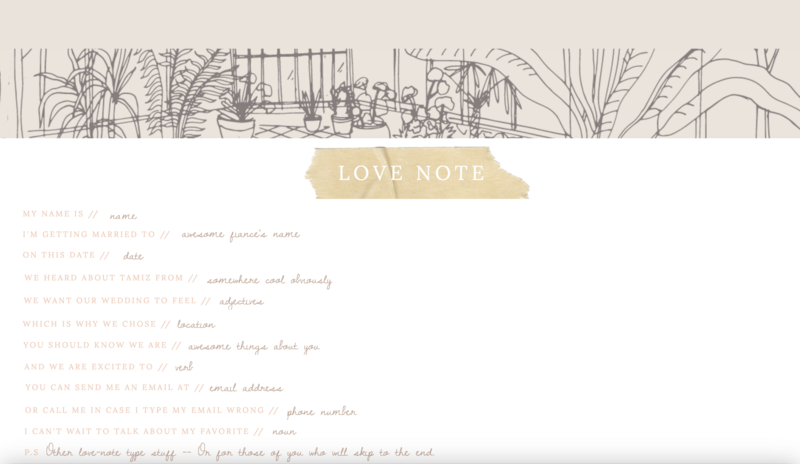 LOVE NOTE
MY NAME IS // name
I'M GETTING MARRIED TO // awesome fiance's name
ON THIS DATE // date
WE HEARD ABOUT TAMIZ FROM // somewhere cool obviously
WE WANT OUR WEDDING TO FEEL // adjectives
WHICH IS WHY WE CHOSE // location
YOU SHOULD KNOW WE ARE // awesome things about you
AND WE ARE EXCITED TO // verb
YOU CAN SEND ME AN EMAIL AT // email address
OR CALL ME IN CASE I TYPE MY EMAIL WRONG // phone number
I CAN'T WAIT TO TALK ABOUT MY FAVORITE // noun
P.S Other love-note type stuff -- Or for those of you who will skip to the end.